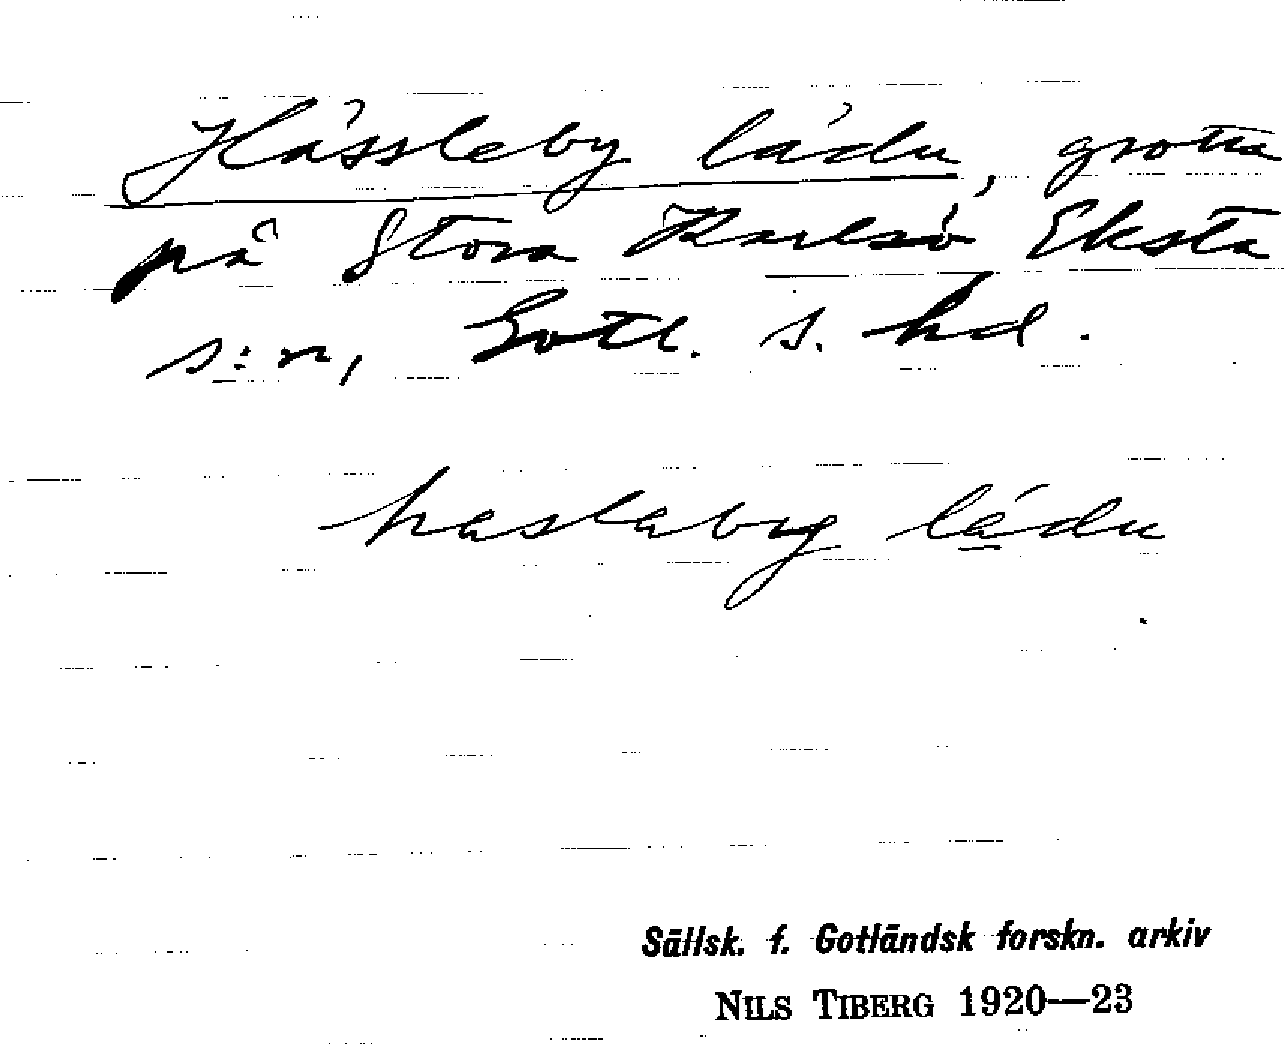 Hässleby lädu, grotta
på Stora Karlsö Eksta
s:n, Gotl. s. hd.
haslabyg
Sällsk. f. Gotländsk forskn. arkiv
NILS TIBERG 1920—23